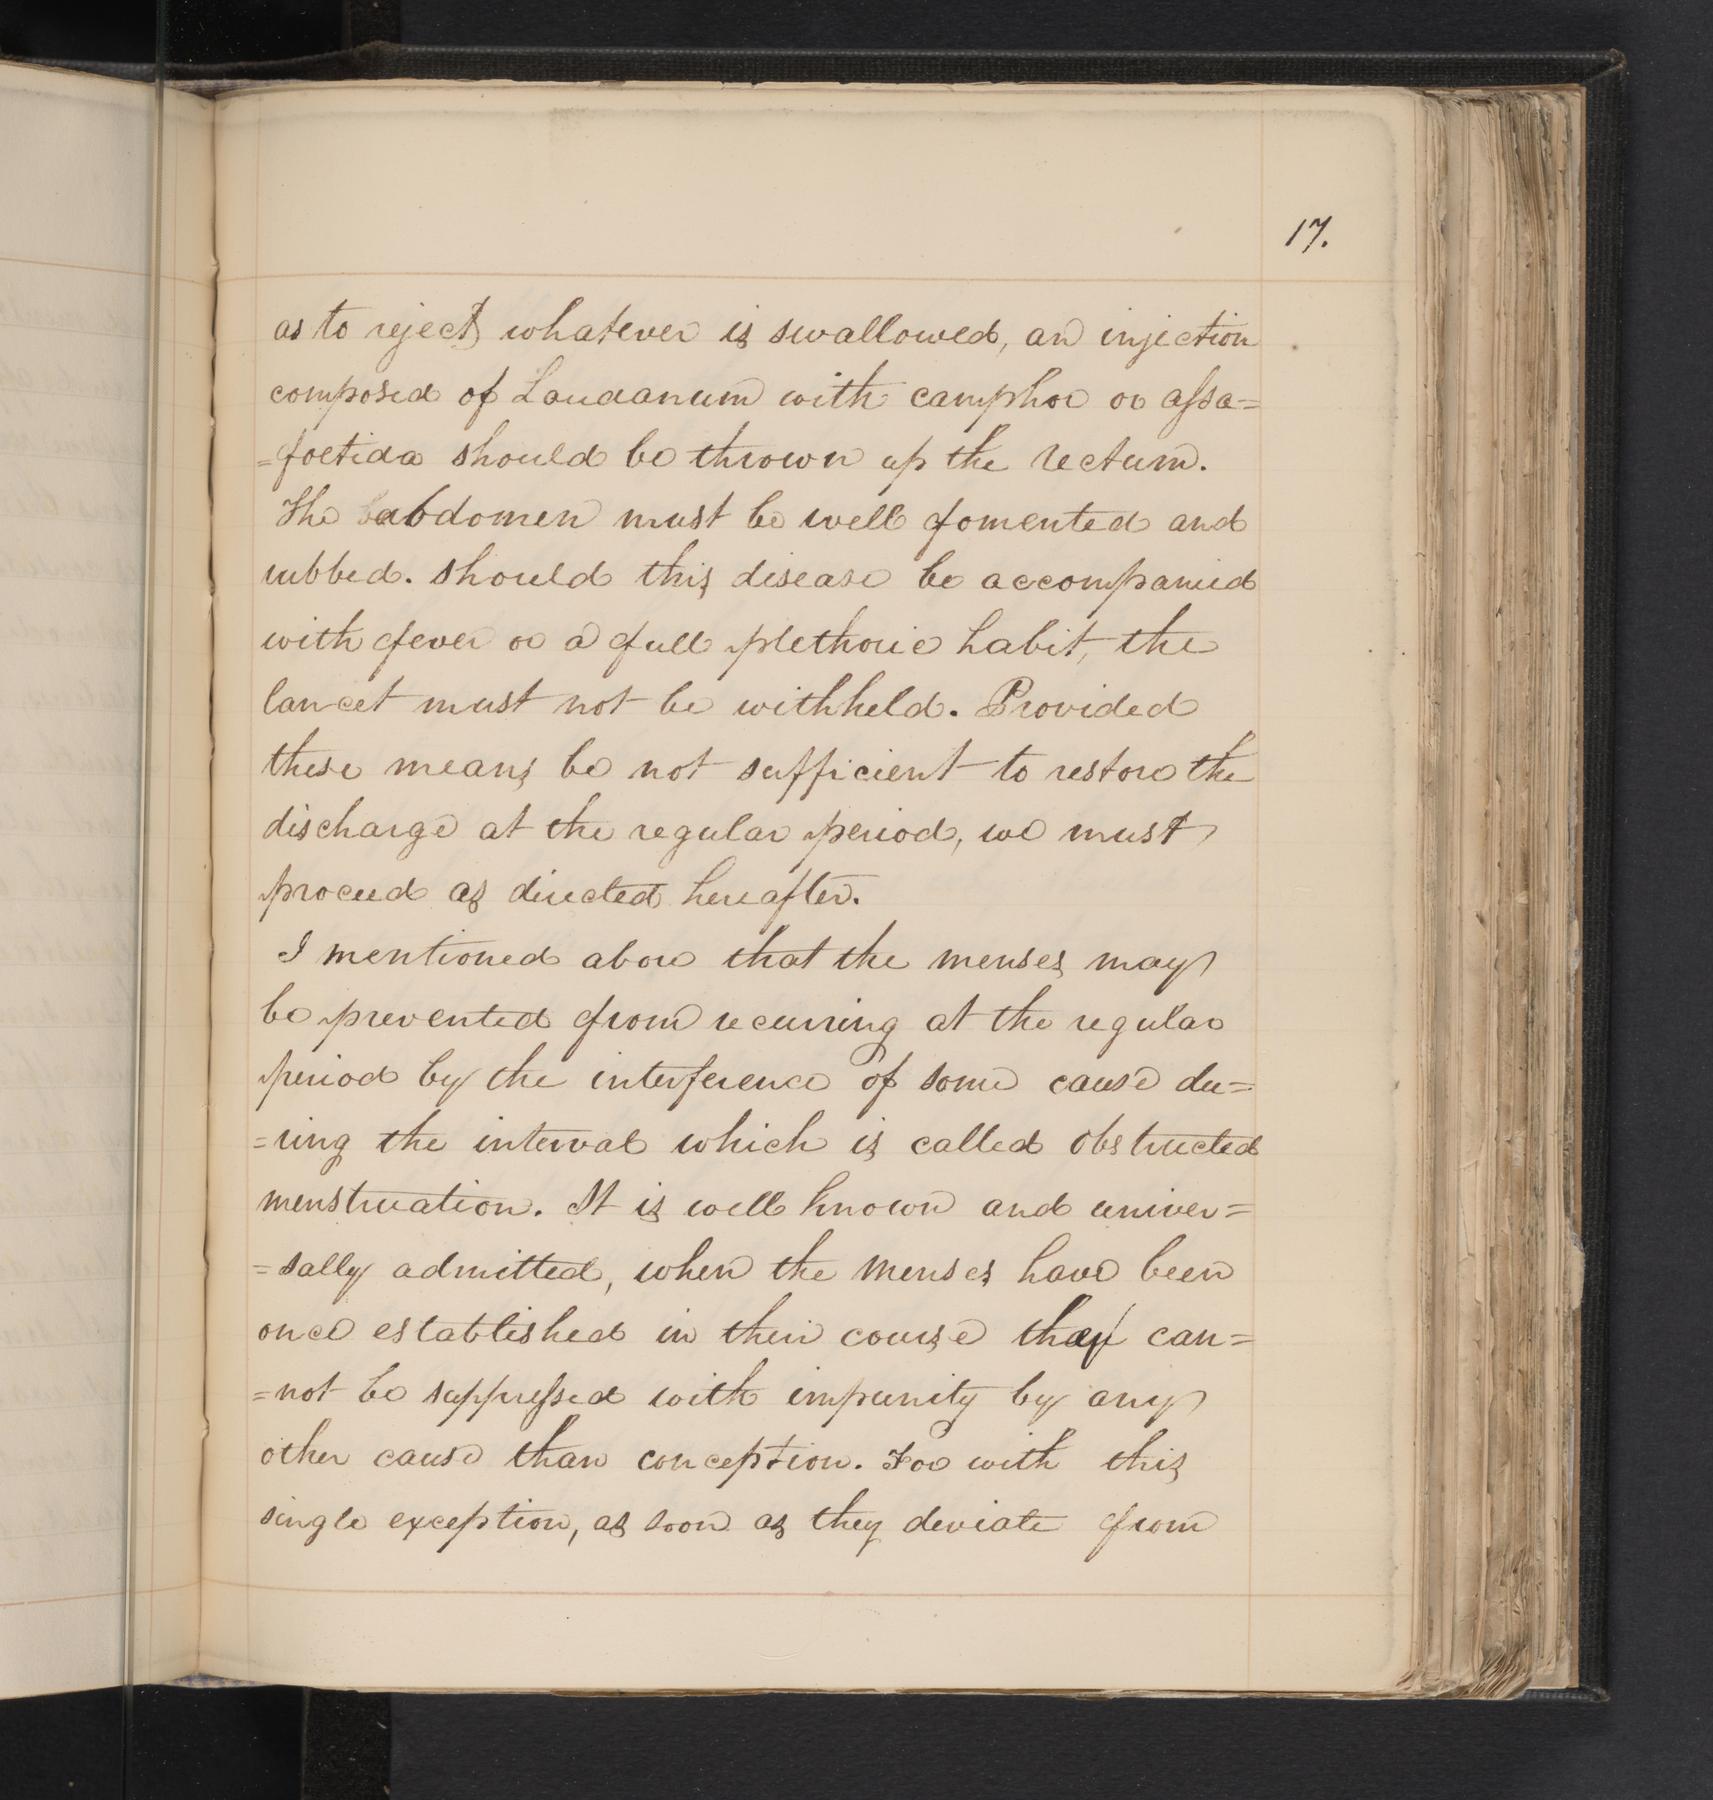 17.
as to reject whatever is swallowed, an injection
composed of Laudanum with camphor or assa=
=foetida should be thrown up the rectum.
The abdomen must be well fomented and
rubbed. should this disease be accompanied
with fever or a full plethoric habit, the
lancet must not be withheld. Provided
these means be not sufficient to restore the
discharge at the regular period, we must
proceed as directed hereafter.
I mentioned above that the menses may
be prevented from recurring at the regular
period by the interference of some cause du=
=ring the interval which is called obstructed
menstruation. It is well known and univer=
=sally admitted, when the menses have been
once established in their course they can=
=not be suppressed with impunity by any
other cause than conception. For with this
single exception, as soon as they deviate from